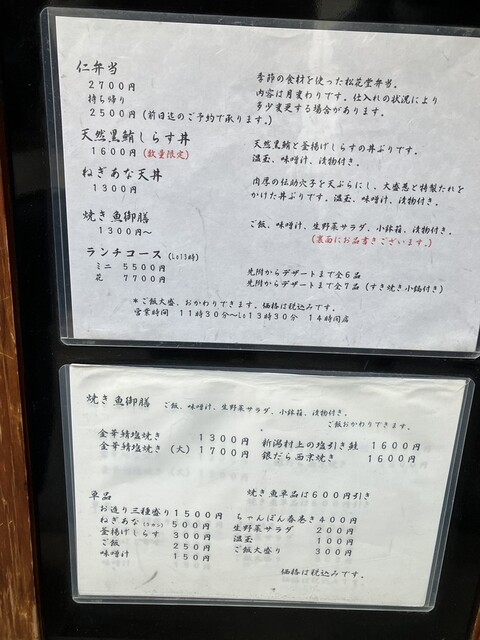 仁弁当
２７００円
持ち帰り
２５００円（前日迄のご予約で承ります。）
季節の食材を使った松花堂弁当。
内容は月変わりです。仕入れの状況により
多少変更する場合があります。
天然黒鮪しらす丼
１６００円（数量限定）
天然黒鮪と釜揚げしらすの丼ぶりです。
温玉、味噌汁、漬物付き。
ねぎあな天丼
１３００円
肉厚の伝助穴子を天ぷらにし、大盛葱と特製だれを
かけた丼ぶりです。温玉、味噌汁、漬物付き。
焼き魚御膳
１３００円～
ご飯、味噌汁、生野菜サラダ、小鉢箱、漬物付き。
（裏面にお品書きございます。）
ランチコース（Lo13時）
ミニ　５５００円
花　７７００円
先附からデザートまで全６品
先附からデザートまで全７品（すき焼き小鍋付き）
＊ご飯大盛、おかわりできます。価格は税込みです。
営業時間　１１時３０分～Lo１３時３０分　１４時閉店
焼き魚御膳　ご飯、味噌汁、生野菜サラダ、小鉢箱、漬物付き。
ご飯おかわりできます。
金華鯖塩焼き　１３００円
金華鯖塩焼き（大）１７００円
新潟村上の塩引き鮭　１６００円
銀だら西京焼き　１６００円
単品
焼き魚単品は６００円引き
お造り三種盛り１５００円
ねぎあな（２カン）５００円
釜揚げしらす　３００円
ご飯　２５０円
味噌汁　１５０円
ちゃんぽん春巻き４００円
生野菜サラダ　２００円
温玉　１００円
ご飯大盛り　３００円
価格は税込みです。